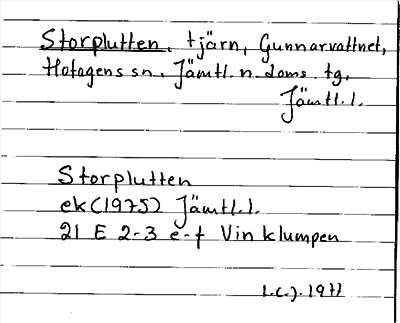 Storplutten, tjärn, Gunnarvattnet,
Hotagens sn, Jämtl. n. doms. tg,
Jämtl.l.
Storplutten
ek (1975) Jämtl.l.
21 E 2-3 e-f Vinklumpen
1977